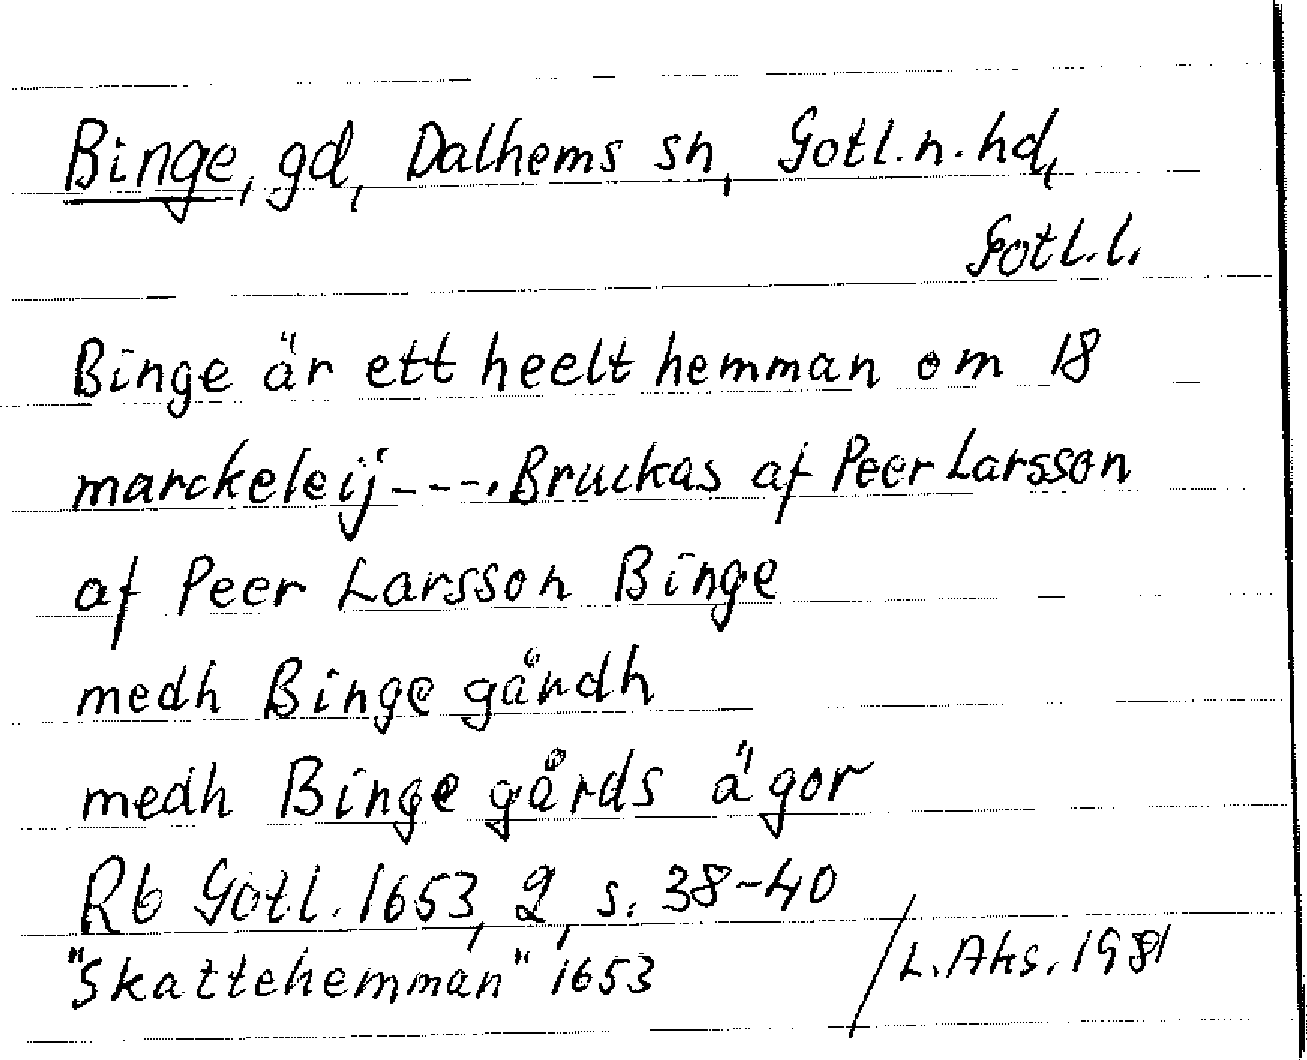 Binge, gd, Dalhems sn, Gotl. n. hd,
Gotl. l.
Binge är ett heelt hemman om 18
marckeleij ---. Bruckas af Peer Larsson
af Peer Larsson Binge
medh Binge gårdh
medh Binge gårds ägor
Rb Gotl. 1653, 2, s. 38-40
"Skattehemman" 1653
/L. Ahs. 1981